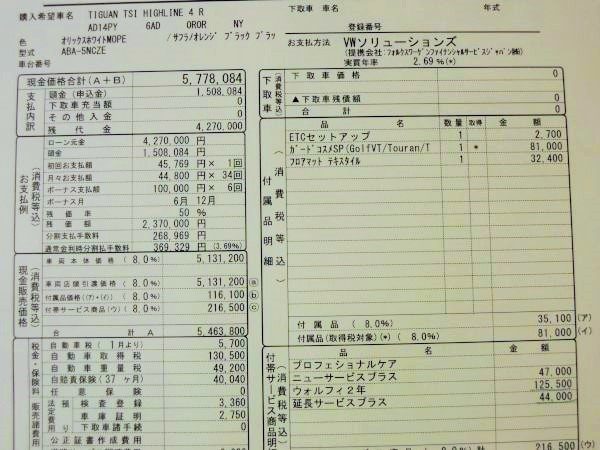 購入希望車名 TIGUAN TSI HIGHLINE 4 R
AD14PY 6AD 0R0R NY
色 オリックスホワイトMOPE /サフラノオレンジ ブラック ブラッ
型式 ABA-5NCZE
車台番号
下取車 車名 年式
登録番号
お支払方法 VWソリューションズ
(提携会社:フォルクスワーゲンファイナンシャルサービスジャパン㈱)
実質年率 2.69 %(*)
現金価格合計(A+B) 5,778,084
支払内訳
頭金(申込金) 1,508,084
下取車充当額 0
その他入金 0
残代金 4,270,000
お支払例 (消費税等込)
ローン元金 4,270,000 円
頭金 1,508,084 円
初回お支払額 45,769 円× 1回
月々お支払額 44,800 円× 34回
ボーナス支払額 100,000 円× 6回
ボーナス月 6月 12月
残価率 50 %
残価額 2,370,000 円
分割支払手数料 268,969 円
通常金利時分割払手数料 369,329 円 (3.69%)
現金販売価格 (消費税等込)
車両本体価格 ( 8.0%) 5,131,200
車両店頭引渡価格 ( 8.0%) 5,131,200 ⓐ
付属品価格((ア)+(イ)) ( 8.0%) 116,100 ⓑ
付帯サービス商品(ウ) ( 8.0%) 216,500 ⓒ
合計 A 5,463,800
税金・保険料
自動車税 ( 1月より) 5,700
自動車取得税 130,500
自動車重量税 49,200
自賠責保険(37 ヶ月) 40,040
任意保険 0
販売諸費用
法定費用
検査登録 3,360
車庫証明 2,750
下取車諸手続 0
公正証書作成費用
下取車 (消費税等込)
下取車価格 0
▲下取車残債額 0
合計 0
付属品明細 (消費税等込)
品名 数量 取得 金額
ETCセットアップ 1 2,700
ガードコスメSP(GolfVT/Touran/T 1 * 81,000
フロアマット テキスタイル 1 32,400
付属品 ( 8.0%) 35,100 (ア)
付属品(取得税対象)(*) ( 8.0%) 81,000 (イ)
付帯サービス商品明細 (消費税等込)
品名 金額
プロフェショナルケア 47,000
ニューサービスプラス 125,500
ウォルフィ2年 44,000
延長サービスプラス
( 8.0%)計 216,500 (ウ)